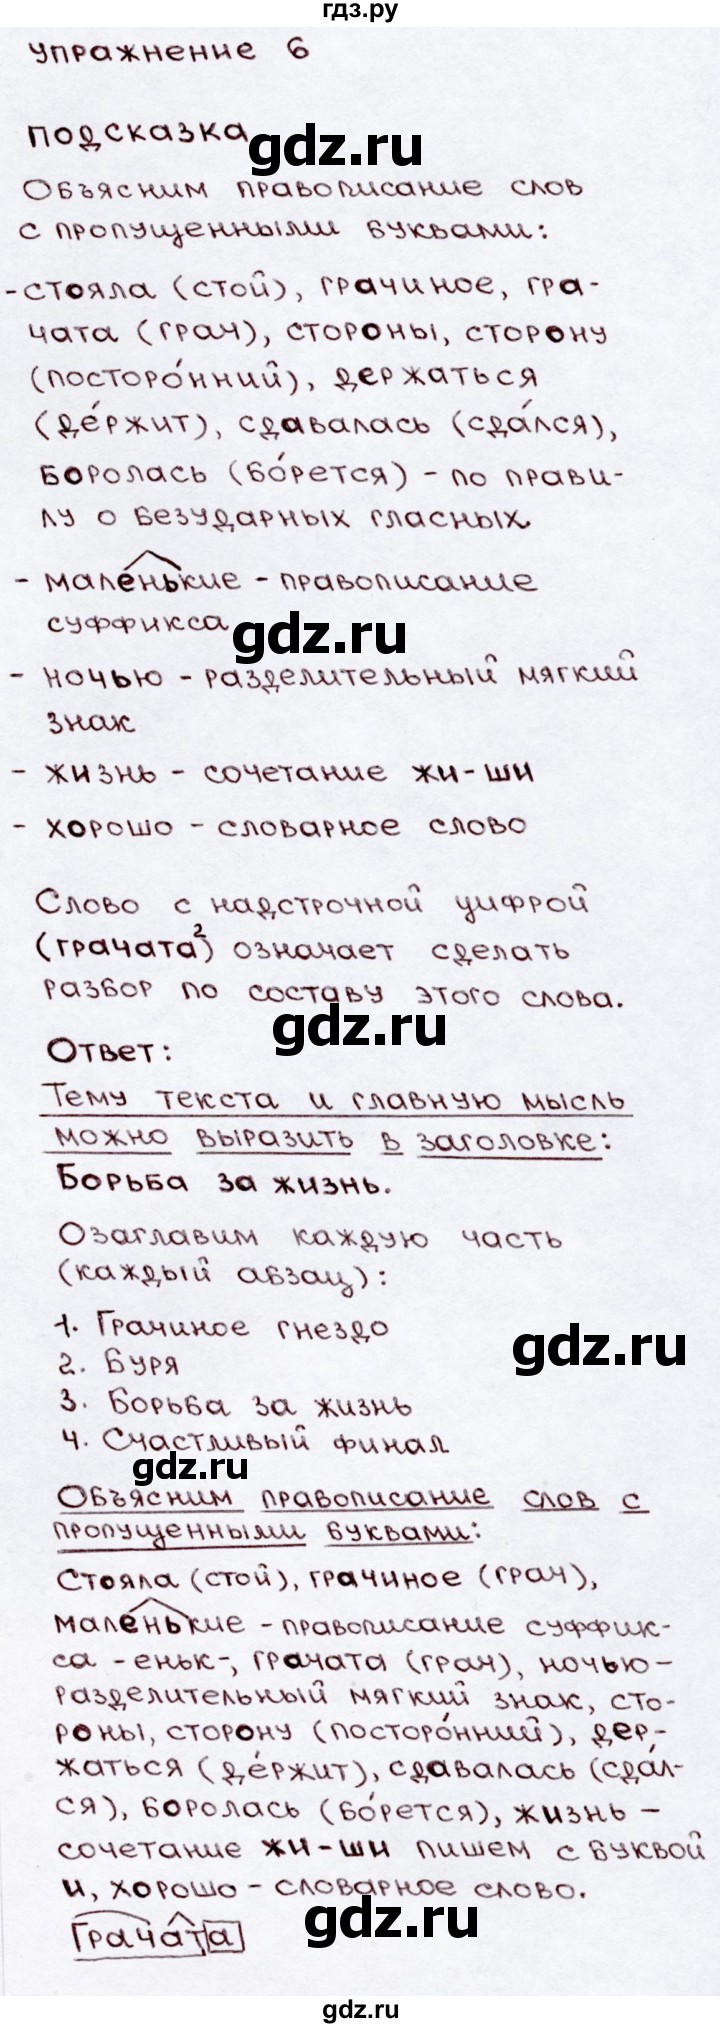 гдз.ру
упражнение 6
подсказка
gdz.ru
Объясним правописание слов
с пропущенными буквами:
-стояла (стой), грачиное, гра-
чата (грач), стороны, сторону
(посторо́нний), держаться
(де́ржит), сдавалась (сда́лся),
боролась (бо́рется) - по прави-
лу о безударных гласных.
- маленькие - правописание
суффикса
gdz.ru
- ночью - разделительный мягкий
знак
- жизнь - сочетание жи-ши
- хорошо - словарное слово
Слово с надстрочной цифрой
(грачата²) означает сделать
разбор по составу этого слова.
gdz.ru
Ответ:
Тему текста и главную мысль
можно выразить в заголовке:
Борьба за жизнь.
Озаглавим каждую часть
(каждый абзац):
1. Грачиное гнездо
gdz.ru
2. Буря
3. Борьба за жизнь
4. Счастливый финал
gdz.ru
Объясним правописание слов с
пропущенными буквами:
Стояла (стой), грачиное (грач),
маленькие - правописание суффик-
са -еньк-, грачата (грач), ночью-
разделительный мягкий знак, сто-
роны, сторону (посторо́нний), дер-
жаться (де́ржит), сдавалась (сда́л-
ся), боролась (бо́рется), жизнь -
сочетание жи-ши пишем с буквой
и, хорошо - словарное слово.
Грачата
gdz.ru
gdz.ru